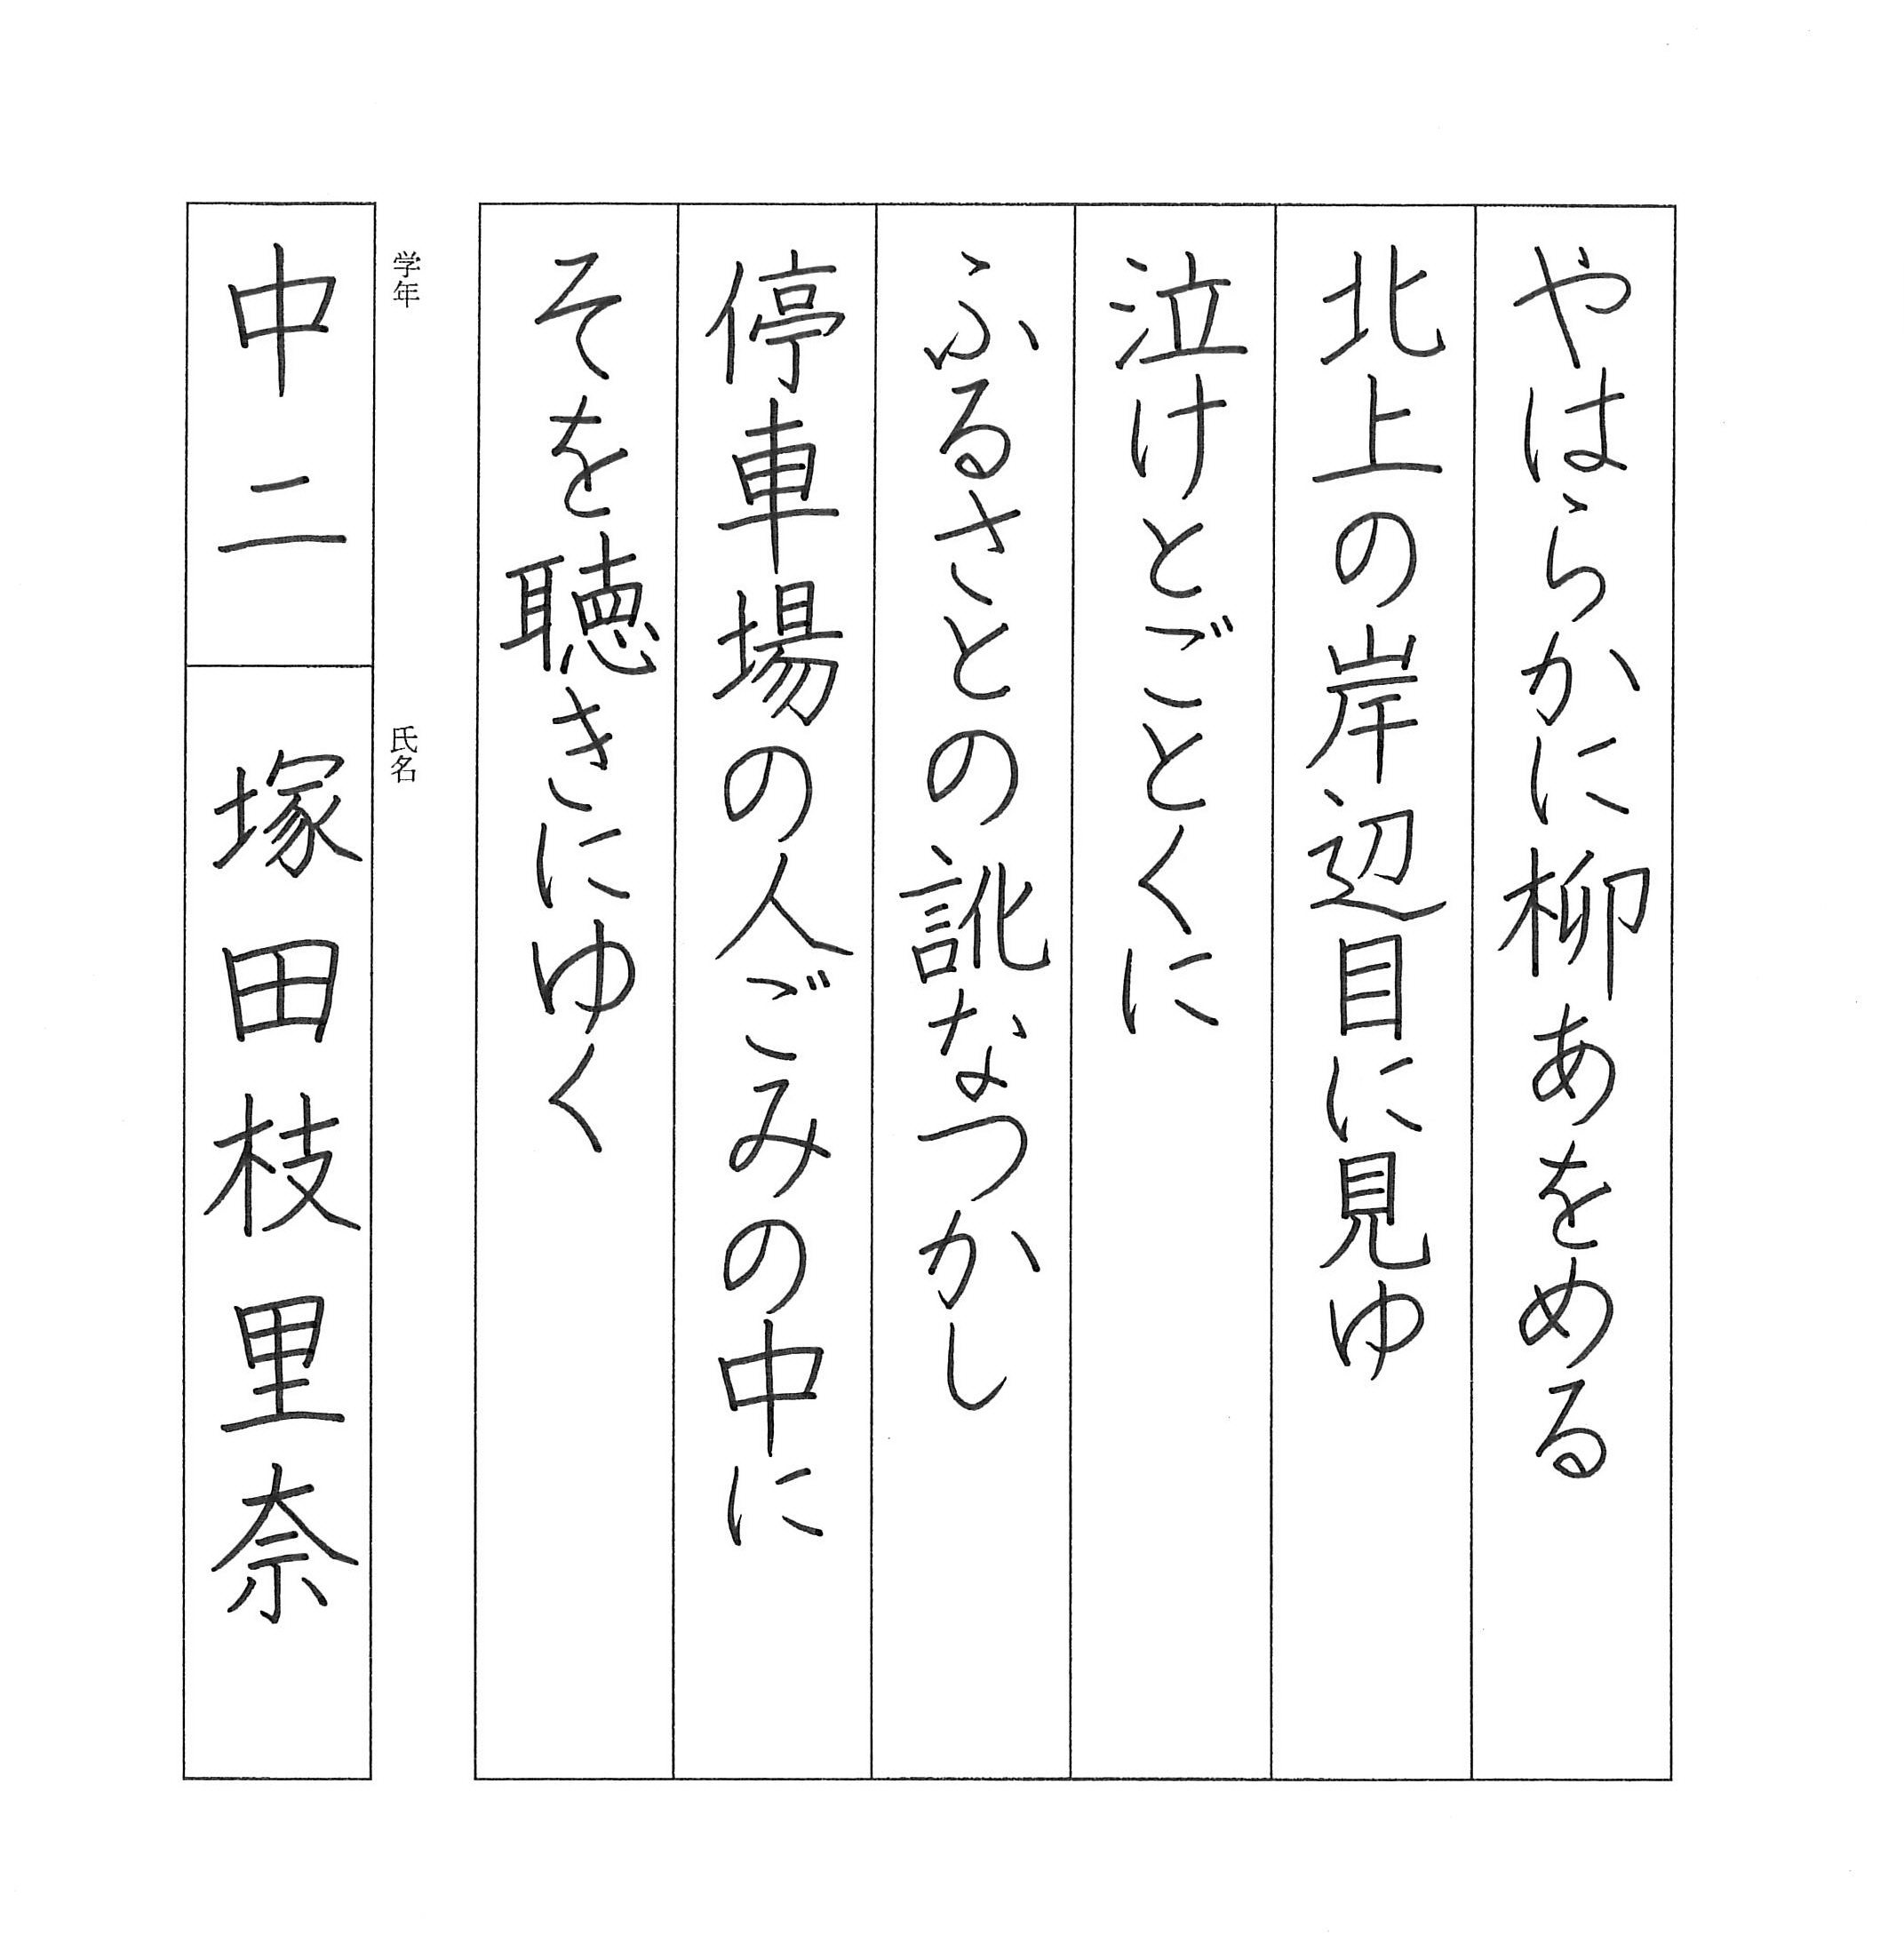 やはらかに柳あをめる
北上の岸辺目に見ゆ
泣けとごとくに
ふるさとの訛なつかし
停車場の人ごみの中に
そを聴きにゆく
学年
中二
氏名
塚田枝里奈